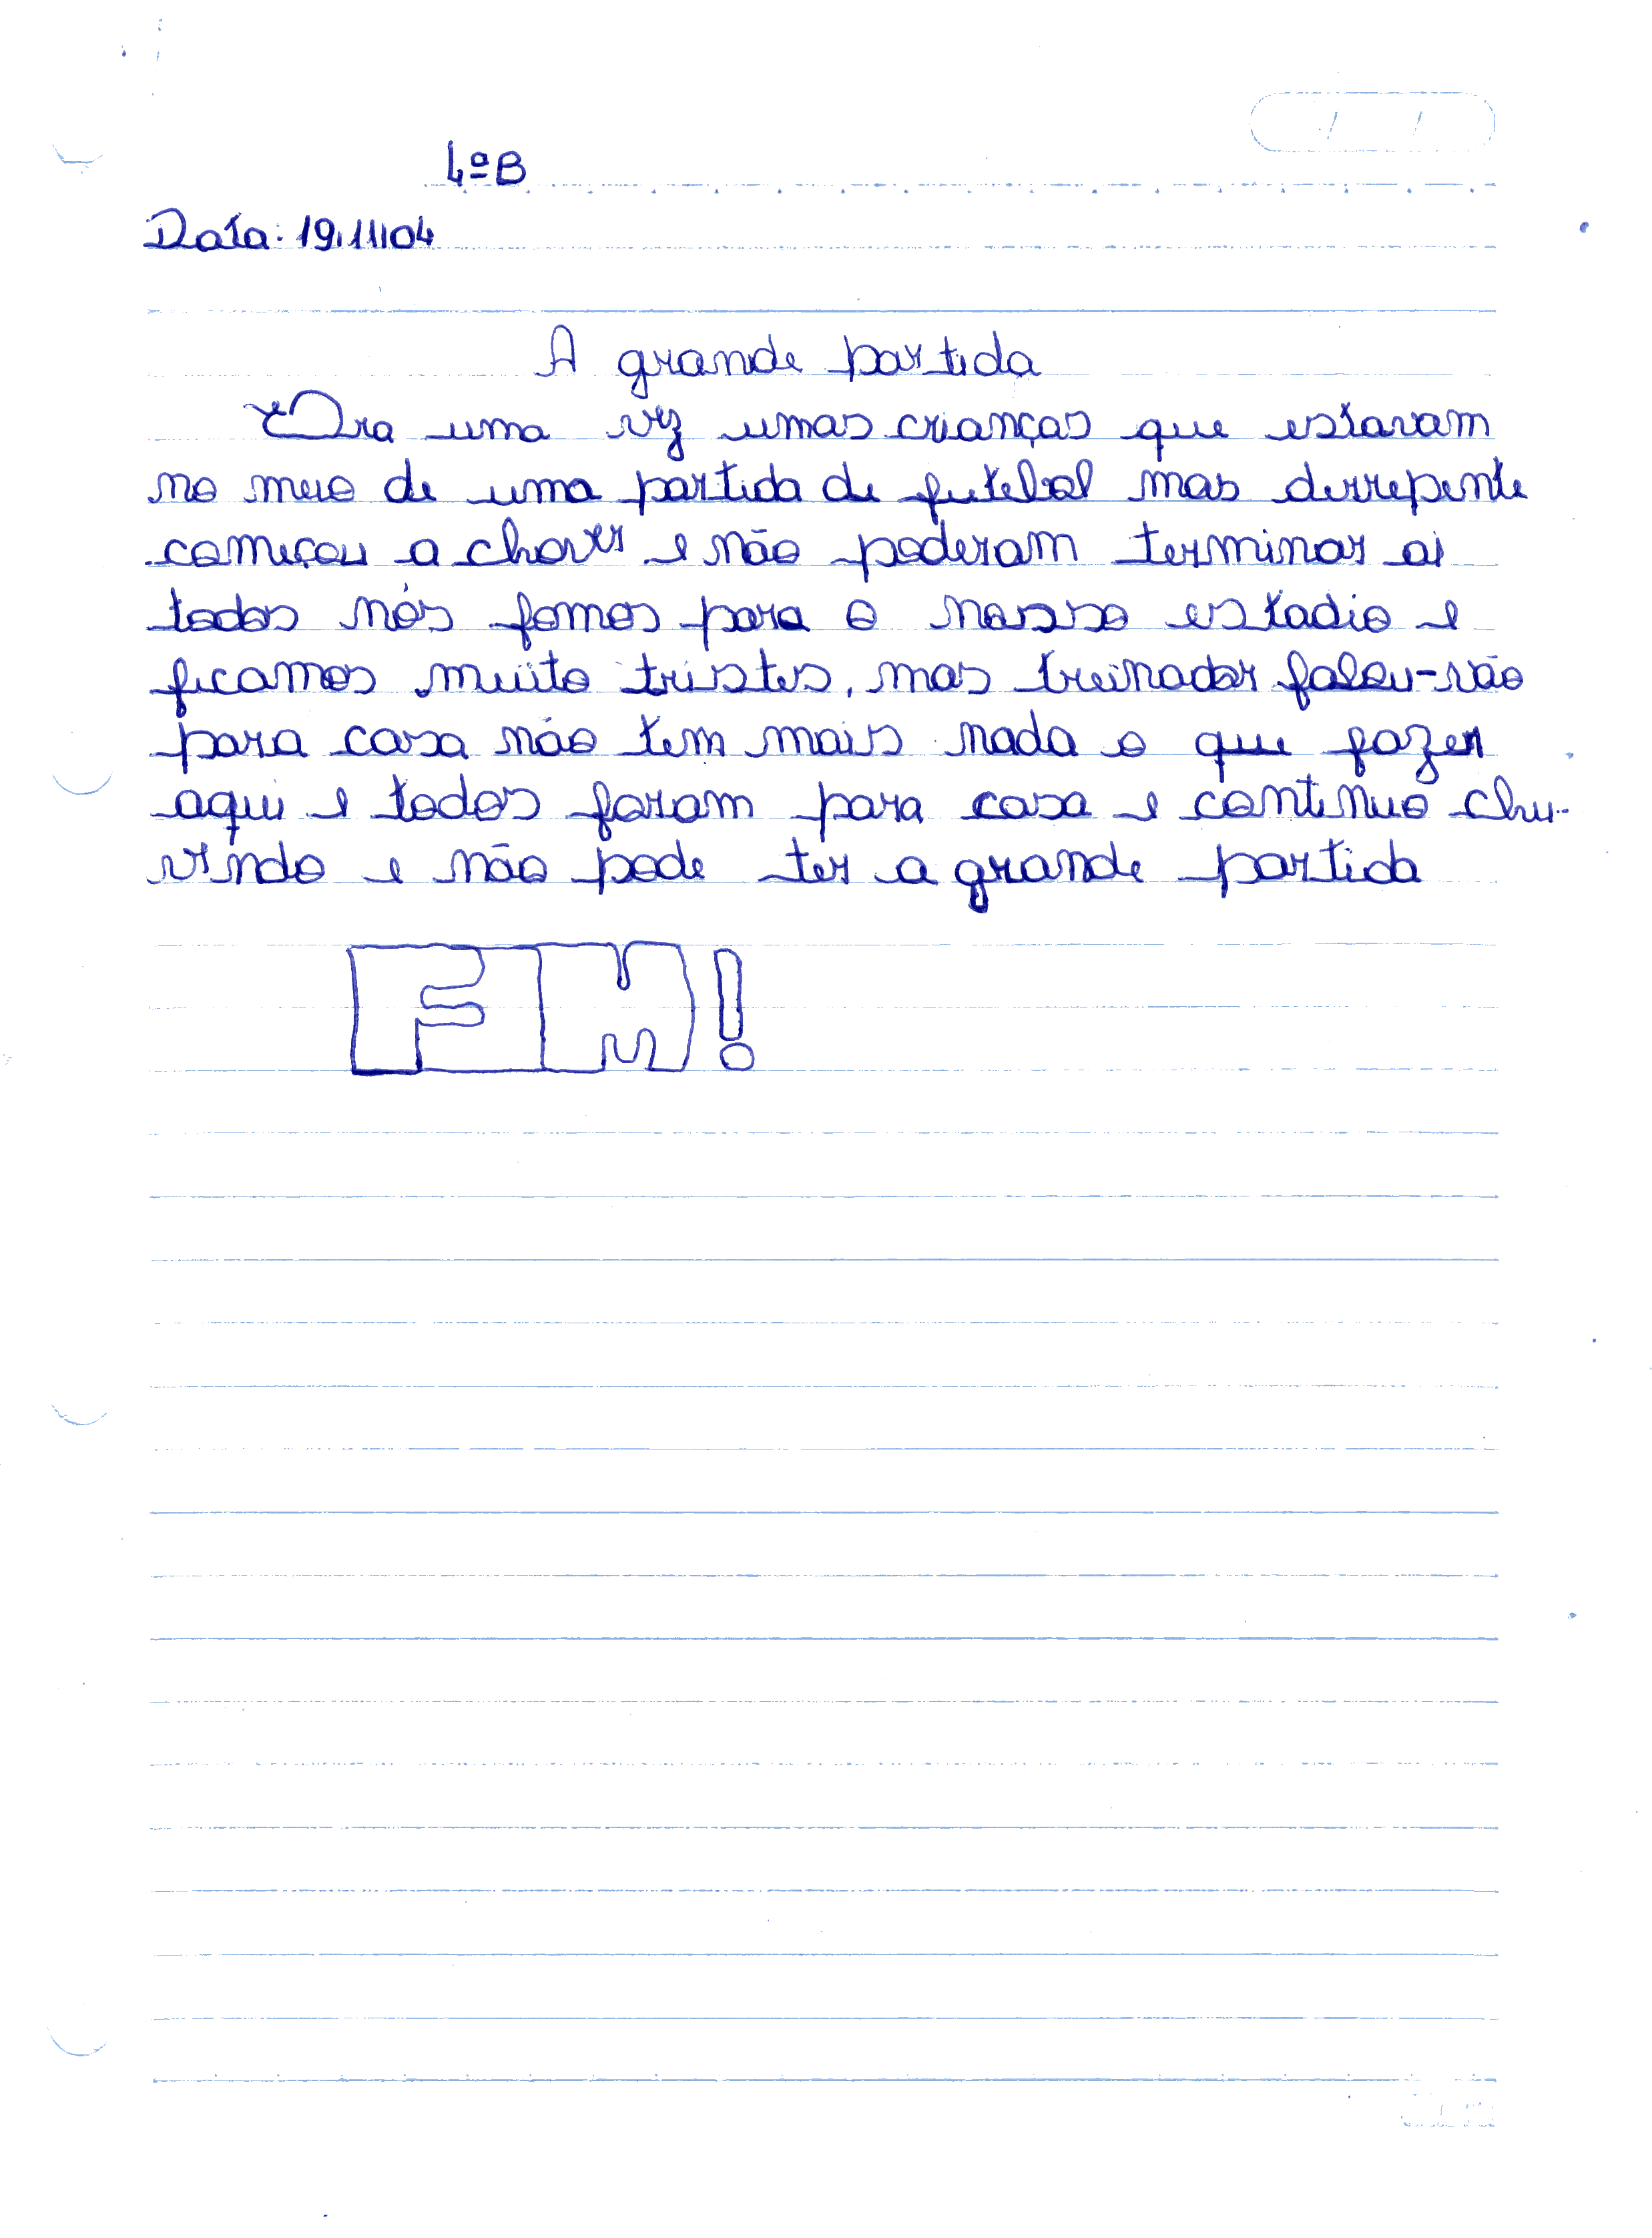 4ºB
Data: 19.11.04
A grande partida
Era uma vez umas crianças que estavam
no meio de uma partida de futebol mas derrepente
começou a chover e não poderam terminar ai
todos nós fomos para o nosso estadio e
ficamos muito tristes, mas treinador falou-vão
para casa não tem mais nada o que fazer
aqui e todos foram para casa e continuo chu-
vendo e não pode ter a grande partida
FIM!